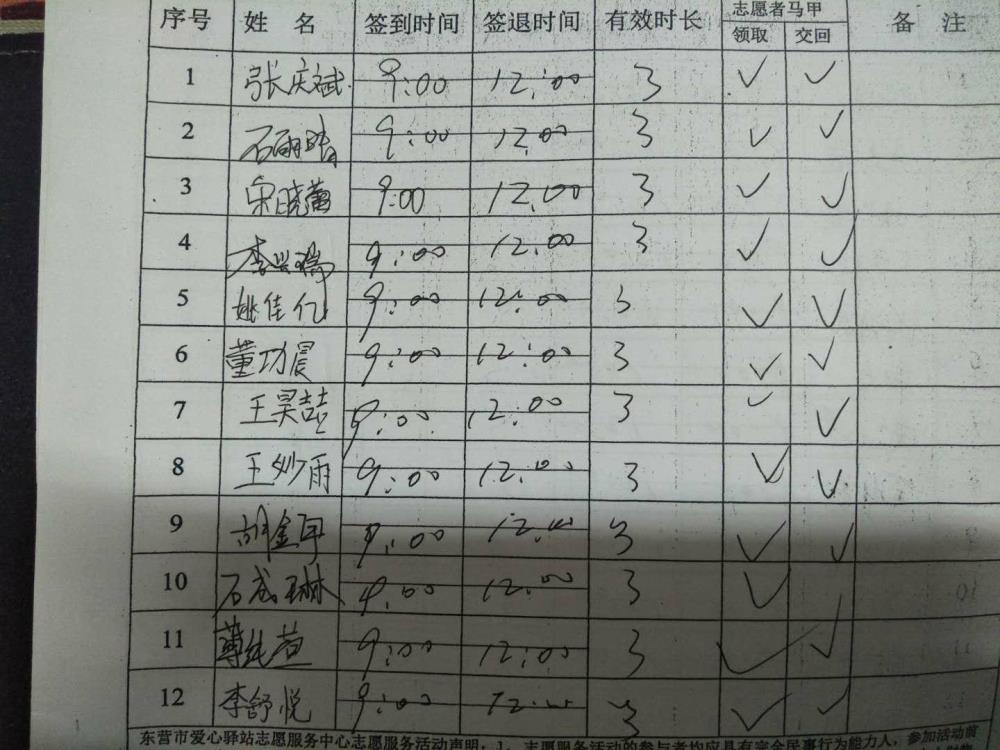 序号 姓 名 签到时间 签退时间 有效时长 志愿者马甲 备 注
领取 交回
1 张庆斌 9:00 12:00 3 ✓ ✓
2 石雨晴 9:00 12:00 3 ✓ ✓
3 宋晓蕾 9:00 12:00 3 ✓ ✓
4 李兴瑞 9:00 12:00 3 ✓ ✓
5 姚佳亿 9:00 12:00 3 ✓ ✓
6 董功晨 9:00 12:00 3 ✓ ✓
7 王昊喆 9:00 12:00 3 ✓ ✓
8 王妙雨 9:00 12:00 3 ✓ ✓
9 9:00 12:00 3 ✓ ✓
10 9:00 12:00 3 ✓
11 9:00 12:00 3 ✓ ✓
12 李舒悦 9:00 12:00 3 ✓ ✓
东营市爱心驿站志愿服务中心志愿服务活动声明：1、志愿服务活动的参与者均应具有完全民事行为能力人，参加活动前